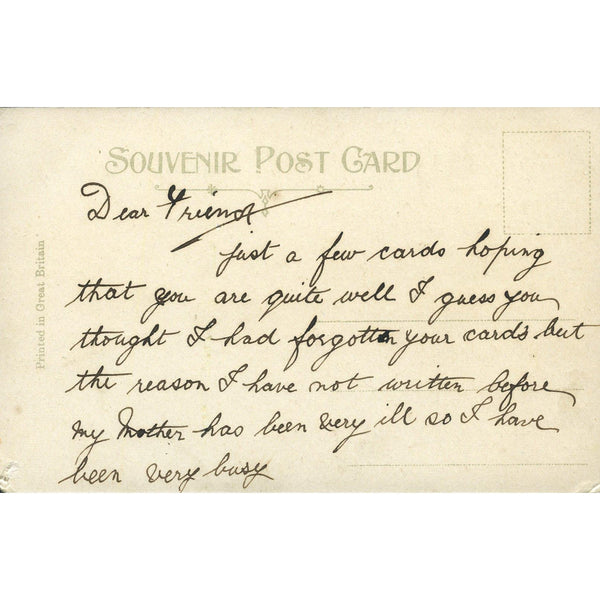 SOUVENIR POST CARD
Dear Friend
just a few cards hoping
that you are quite well I guess you
thought I had forgotten your cards but
the reason I have not written before
my Mother has been very ill so I have
been very busy
Printed in Great Britain